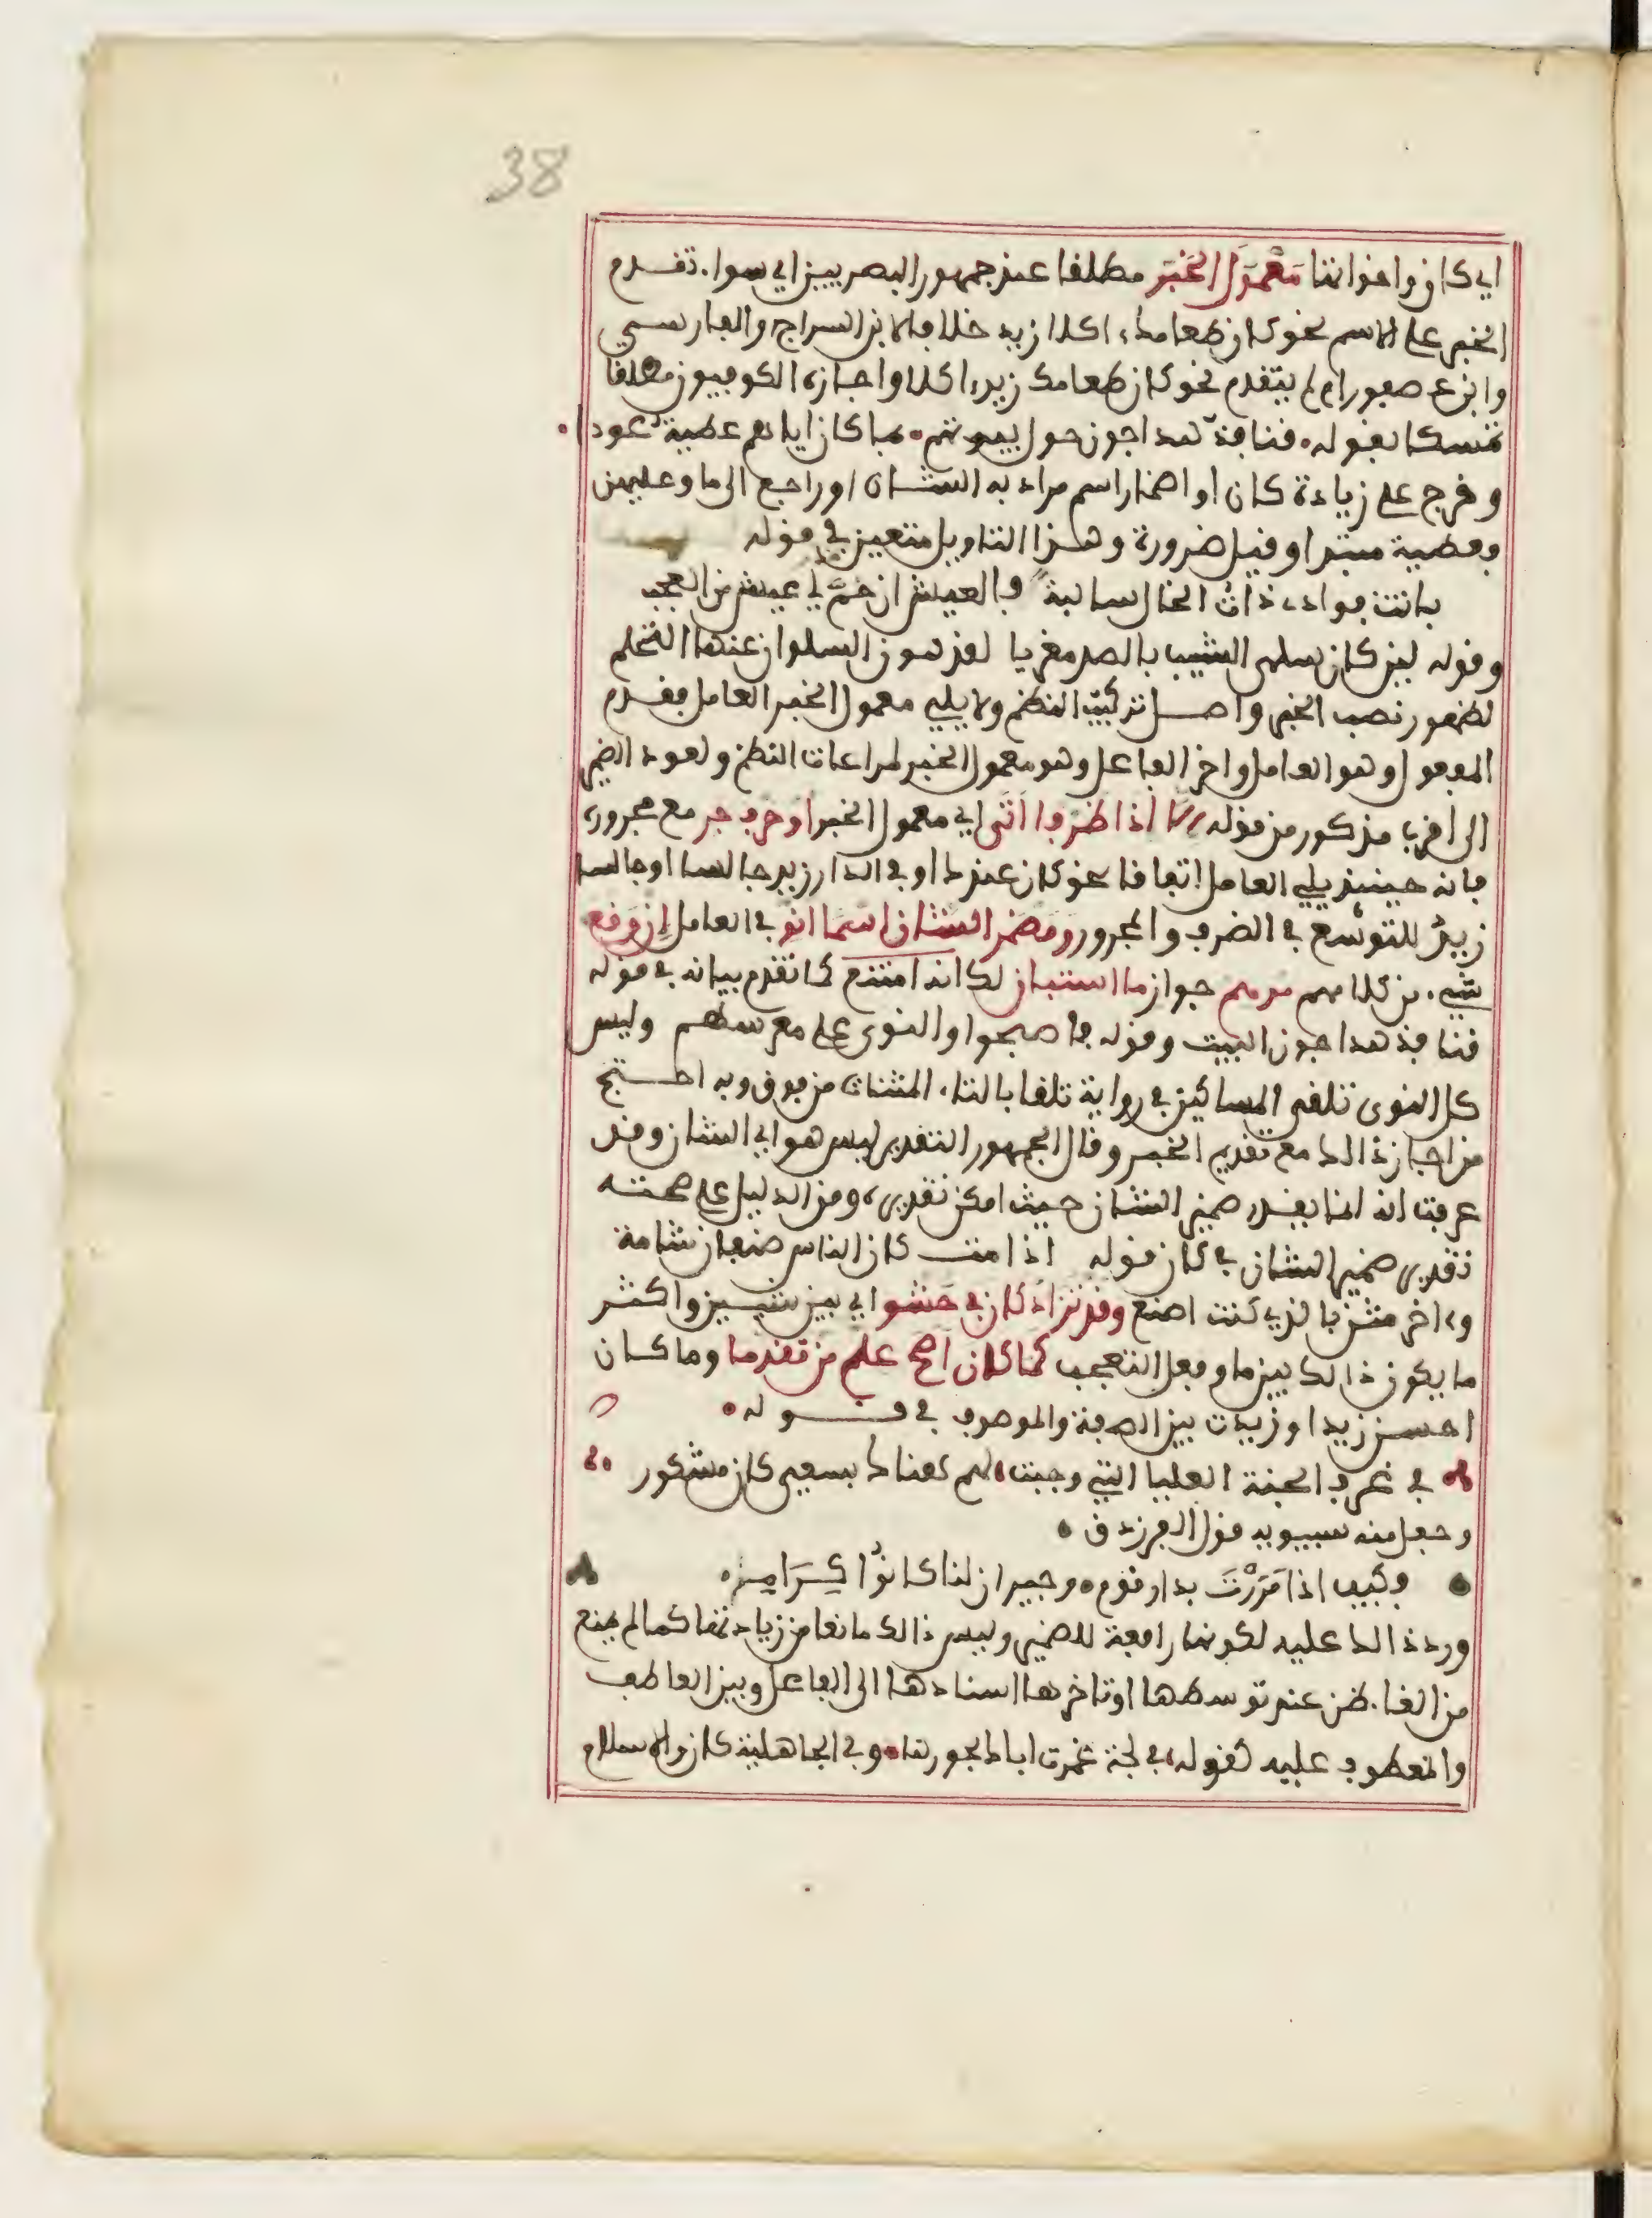 38
اي كان واخواتها مَعْمُولَ الخَبَر مطلقا عند جمهور البصريين اي سواء تقدم
الخبر على الاسم نحو كان طعامك ءاكلا زيد خلافا لابن السراج والفارسي
وابن عصفور ام لم يتقدم نحو كان طعامك زيد ءاكلا واجازه الكوفيون مطلقا
تمسكا بقوله قنافذ هداجون حول بيوتهم بما كان اياهم عطية عودا
وخرج على زيادة كان او اضمار اسم مراد به الشان او راجع الى ما وعليهن
فعطية مبتدا وقيل ضرورة وهذا التاويل متعين في قوله
باتت فوادي ذات الخال سالبة فالعيش ان حم لي عيش من العجب
وقوله ليز كان سلمى الشيب بالصد مغريا لقد هون السلوان عنها التحلم
لظهور نصب الخبر واصل تركيب النظم ولا يلي معمول الخبر العامل فقدم
المفعول وهو العامل واخر الفاعل وهو معمول الخبر لمراعات النظم ولعود الضمير
الى اقرب مذكور من قوله الا اذا ظرفا اتى اي معمول الخبر او حرف جر مع مجروره
فانه حينئذ يلي العامل اتفاقا نحو كان عندك او في الدار زيد جالسا او جالسا
زيد للتوسع في الضرف والمجرور ومضمر الشان اسما انو في العامل ان وقع
شيء من كلامهم موهم جواز ما استبان لك انه امتنع كما تقدم بيانه في قوله
قنافذ هداجون البيت وقوله فاصبحوا والنوى على معرسهم وليس
كل النوى تلقي المساكين في رواية تلفا بالتاء المثنات من فوق وبه احتج
من اجاز ذالك مع تقديم الخبر وقال الجمهور التقدير ليس هو اي الشان وقد
عرفت انه انما يقدر ضمير الشان حيث امكن تقديره ومن الدليل على صحته
تقدير ضمير الشان في كان قوله اذا مت كان الناس صنفان شامة
وءاخر مثن بالذي كنت اصنع وقد تزاد كان في حشو اي بين شيـين واكثر
ما يكون ذالك بين ما وفعل التعجب كما كان اصح علم من تقدما وما كان
احسن زيدا وزيدت بين الصفة والموصوف في قوله
في غرف الجنة العليا التي وجبت لهم هناك بسعي كان مشكور
وجعل منه سيبويه قول الفرزدق
وكيف اذا مَرَرْتَ بدار قوم وجيران لنا كانوا كِرَامِ
ورد ذالك عليه لكونها رافعة للضمير وليس ذالك مانعا من زيادتها كما لم يمنع
من الغاء ظن عند توسطها او تاخرها اسنادها الى الفاعل وبين العاطف
والمعطوف عليه كقوله في لجة غمرت اباك بحورها وفي الجاهلية كان والاسلام